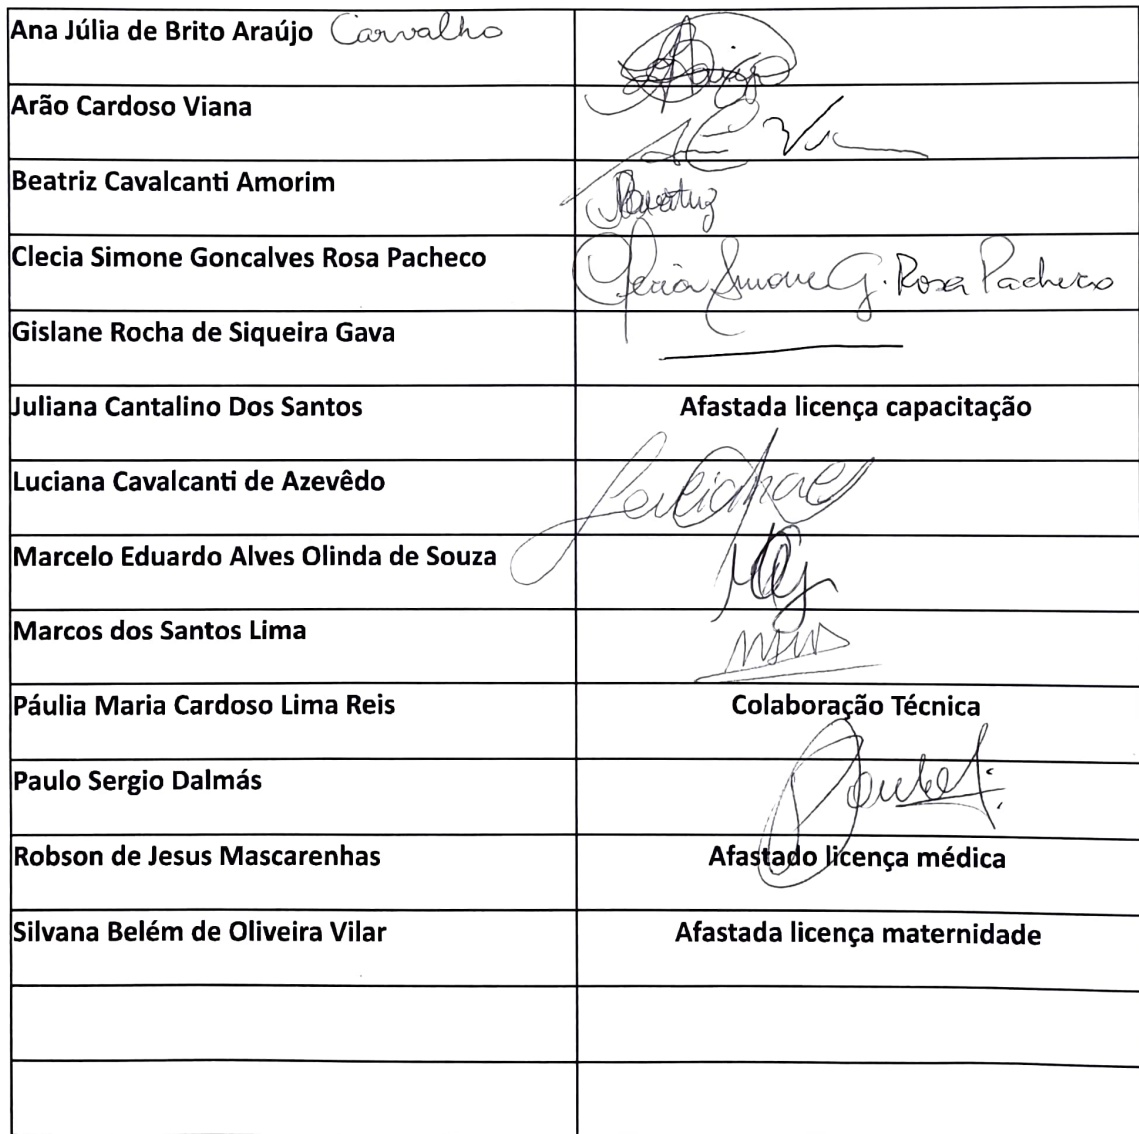 Ana Júlia de Brito Araújo Carvalho
Arão Cardoso Viana
Beatriz Cavalcanti Amorim
Beatriz
Clecia Simone Goncalves Rosa Pacheco
Clecia Simone G. Rosa Pacheco
Gislane Rocha de Siqueira Gava
Juliana Cantalino Dos Santos Afastada licença capacitação
Luciana Cavalcanti de Azevêdo
Marcelo Eduardo Alves Olinda de Souza
Marcos dos Santos Lima
Páulia Maria Cardoso Lima Reis Colaboração Técnica
Paulo Sergio Dalmás
Robson de Jesus Mascarenhas Afastado licença médica
Silvana Belém de Oliveira Vilar Afastada licença maternidade